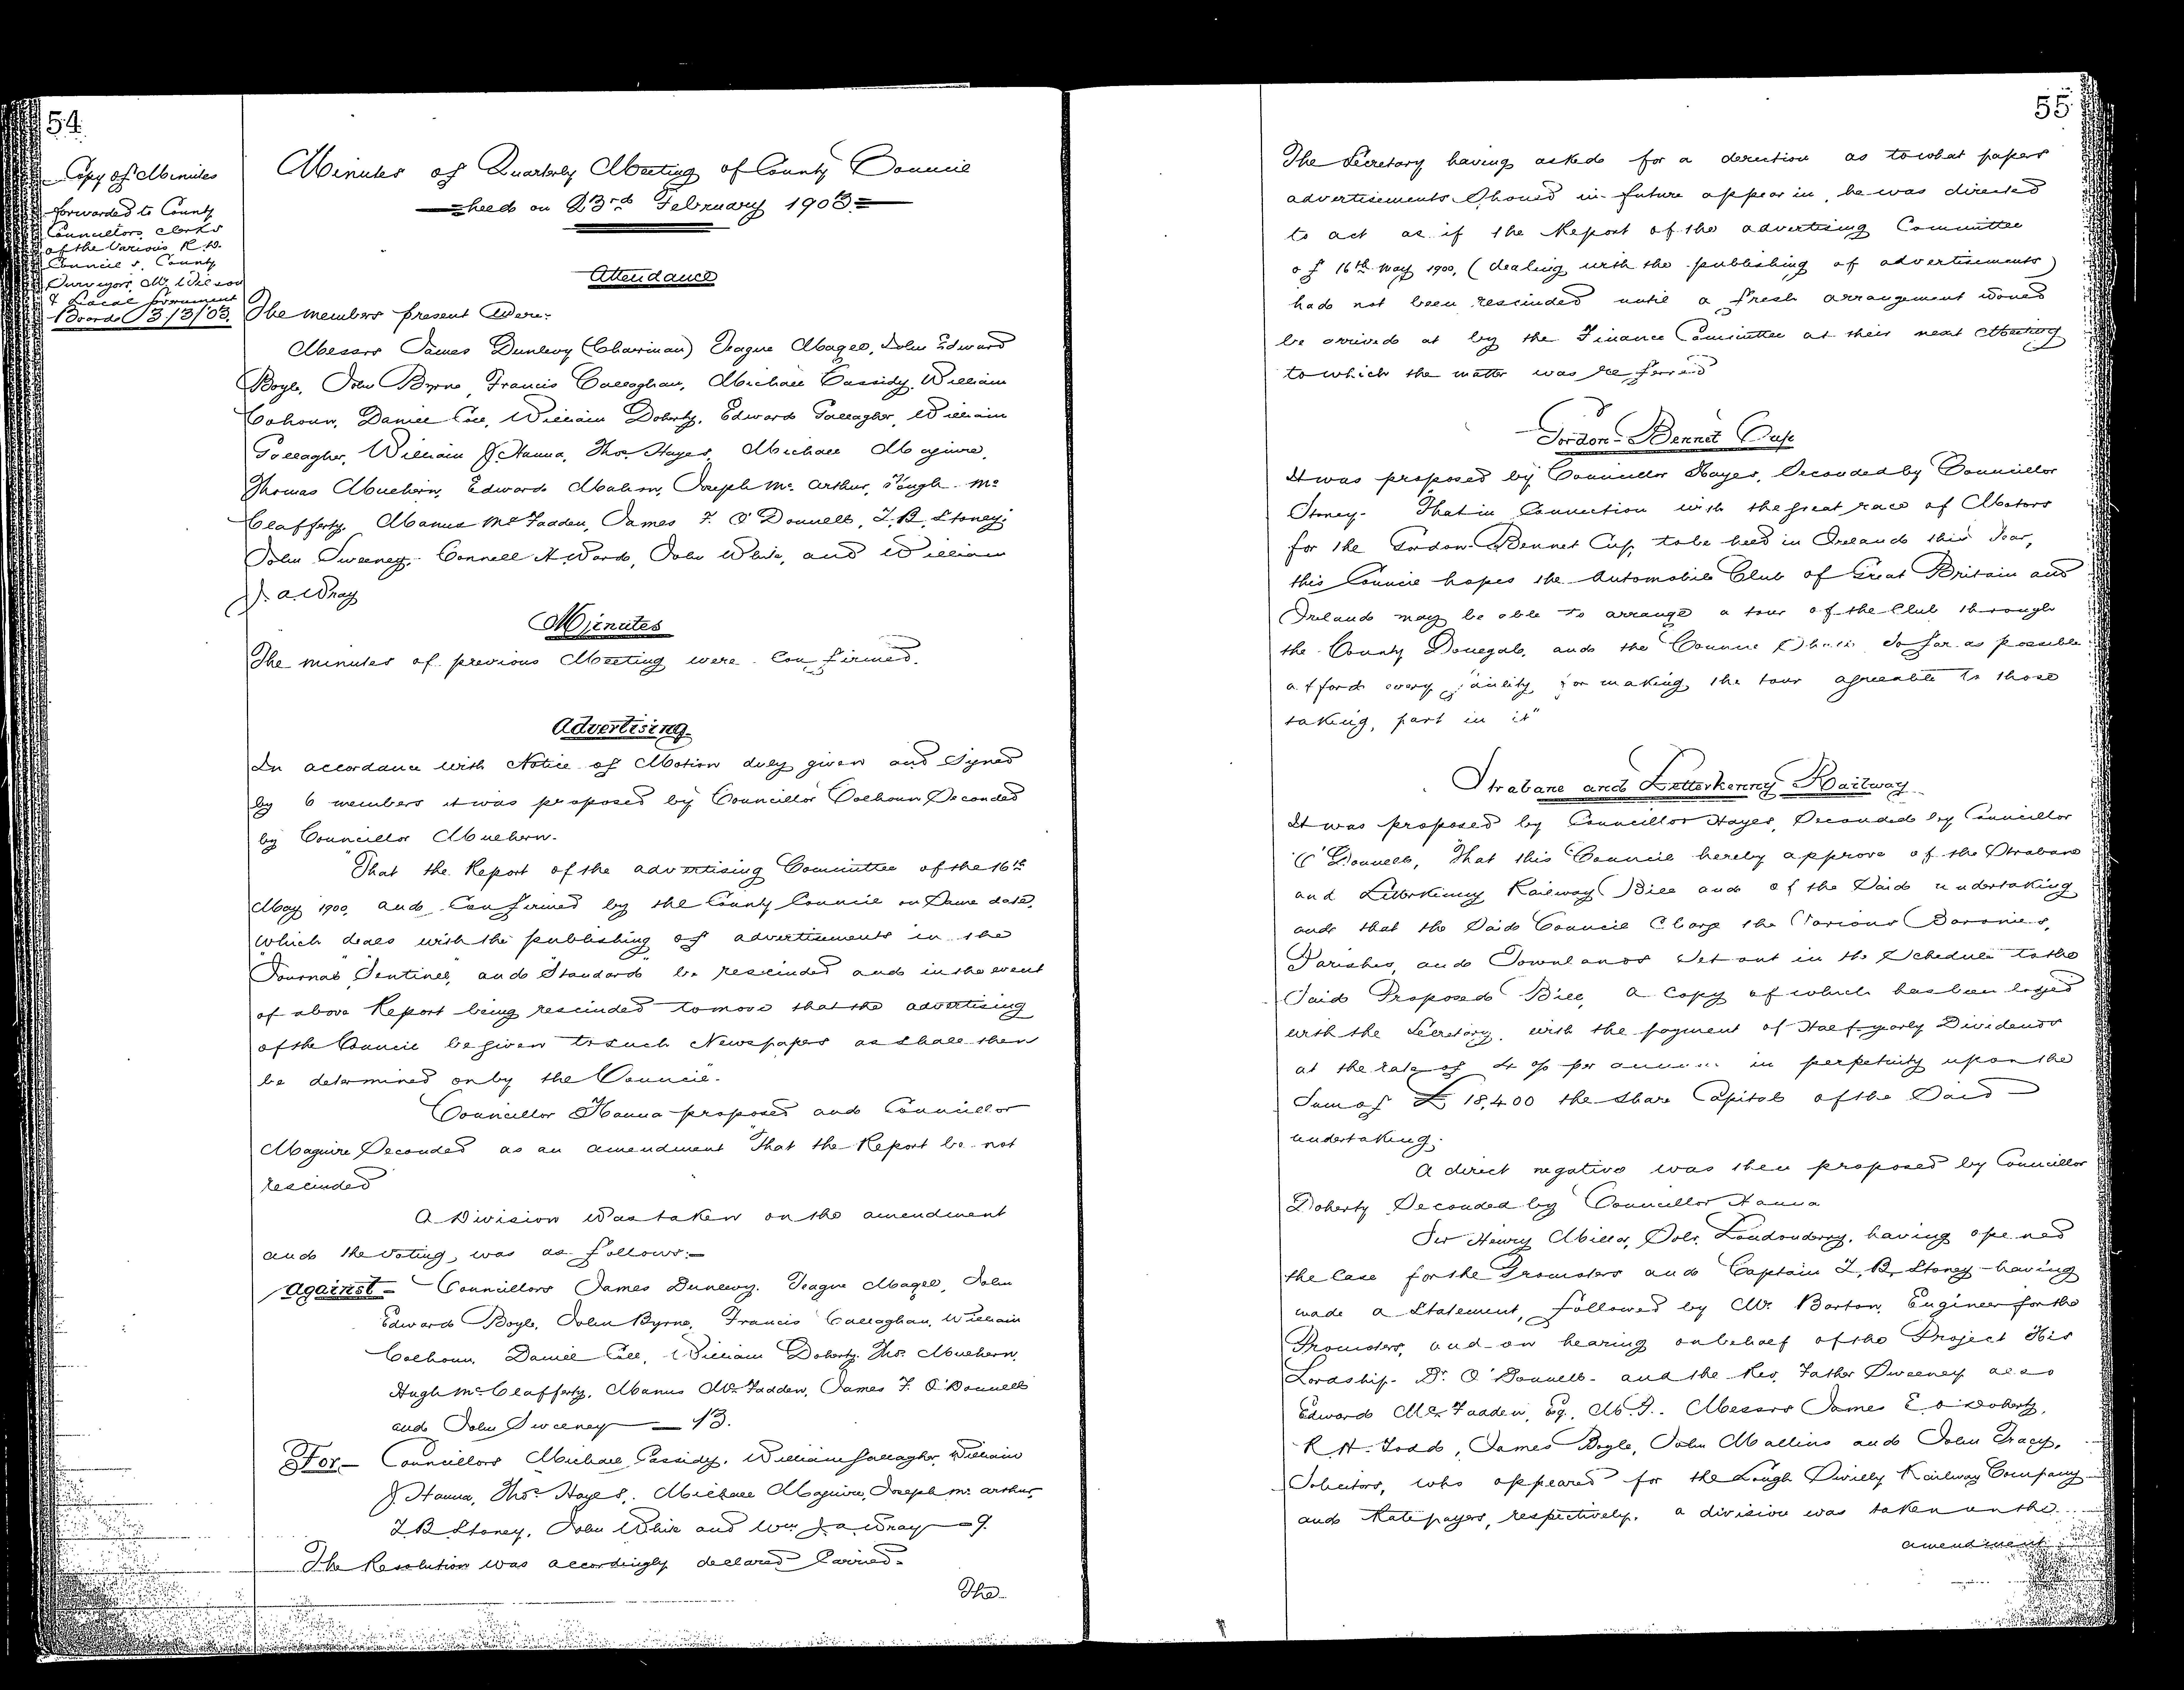 54
Copy of Minutes
forwarded to County
Councillors, Clerks
of the Various R. D.
Councils, County
Surveyors, Mr. Wilson
& Local Government
Board 3/3/03.
Minutes of Quarterly Meeting of County Council
held on 23rd February 1903
Attendance
The members present were:-
Messrs James Dunlevy (Chairman) Teague Magee, John Edward
Boyle, John Byrne, Francis Callaghan, Michael Cassidy, William
Colhoun, Daniel Coll, William Doherty, Edward Gallagher, William
Gallagher, William J. Hanna, Thos. Hayes, Michael Maguire,
Thomas Mulhern, Edward Mahon, Joseph Mc. Arthur, Hugh Mc
Clafferty, Manus McFadden, James F. O'Donnell, T. B. Stoney,
John Sweeney, Connell H. Ward, John White, and William
J. A. Wray
Minutes
The minutes of previous Meeting were Confirmed.
Advertising
In accordance with Notice of Motion duly given and Signed
by 6 members it was proposed by Councillor Colhoun Seconded
by Councillor Mulhern.
"That the Report of the advertising Committee of the 16th
May 1900, and Confirmed by the County Council on Same date,
which deals with the publishing of advertisements in the
"Journal" "Sentinel" and "Standard" be rescinded and in the event
of above Report being rescinded to move that the advertising
of the Council be given to such Newspapers as shall then
be determined on by the Council".
Councillor Hanna proposed and Councillor
Maguire Seconded as an amendment "That the Report be not
rescinded
A Division was taken on the amendment
and the voting was as follows:-
Against - Councillors James Dunlevy, Teague Magee, John
Edward Boyle, John Byrne, Francis Callaghan, William
Colhoun, Daniel Coll, William Doherty, Thos. Mulhern,
Hugh McClafferty, Manus McFadden, James F. O'Donnell
and John Sweeney - 13.
For - Councillors Michael Cassidy, William Gallagher, William
J. Hanna, Thos. Hayes, Michael Maguire, Joseph Mc arthur,
T. B. Stoney, John White and Wm J. A. Wray - 9.
The Resolution was accordingly declared Carried.
The
55
The Secretary having asked for a direction as to what papers
advertisements Should in future appear in, he was directed
to act as if the Report of the advertising Committee
of 16th May 1900, (dealing with the publishing of advertisements)
had not been rescinded until a fresh arrangement would
be arrived at by the Finance Committee at their next Meeting
to which the matter was referred
Gordon-Bennet Cup
It was proposed by Councillor Hayes, Seconded by Councillor
Stoney. "That in Connection with the great race of Motors
for the Gordon-Bennet Cup, to be held in Ireland this Year,
this Council hopes the Automobile Club of Great Britain and
Ireland may be able to arrange a tour of the Club through
the County Donegal, and the Council shall so far as possible
afford every facility for making the tour agreeable to those
taking part in it"
Strabane and Letterkenny Railway
It was proposed by Councillor Hayes, Seconded by Councillor
O'Donnell, "That this Council hereby approve of the Strabane
and Letterkenny Railway Bill and of the Said undertaking
and that the Said Council Charge the Various Baronies,
Parishes, and Townlands Set out in the Schedule to the
Said Proposed Bill, a Copy of which has been lodged
with the Secretary, with the payment of Half-yearly Dividends
at the rate of 4 % per annum in perpetuity upon the
Sum of £ 18,400 the Share Capital of the Said
undertaking.
A direct negative was then proposed by Councillor
Doherty Seconded by Councillor Hanna
Sir Henry Miller, Solr. Londonderry, having opened
the Case for the Promoters and Captain T. B. Stoney having
made a Statement, followed by Mr. Barton, Engineer for the
Promoters, and on hearing on behalf of the Project His
Lordship Dr. O'Donnell and the Rev. Father Sweeney also
Edward McFadden, Esq., Messrs James E. O'Doherty,
R. H. Todd, James Boyle, John Mallins and John Tracy,
Solicitors, who appeared for the Lough Swilly Railway Company
and Ratepayers, respectively, a division was taken on the
amendment